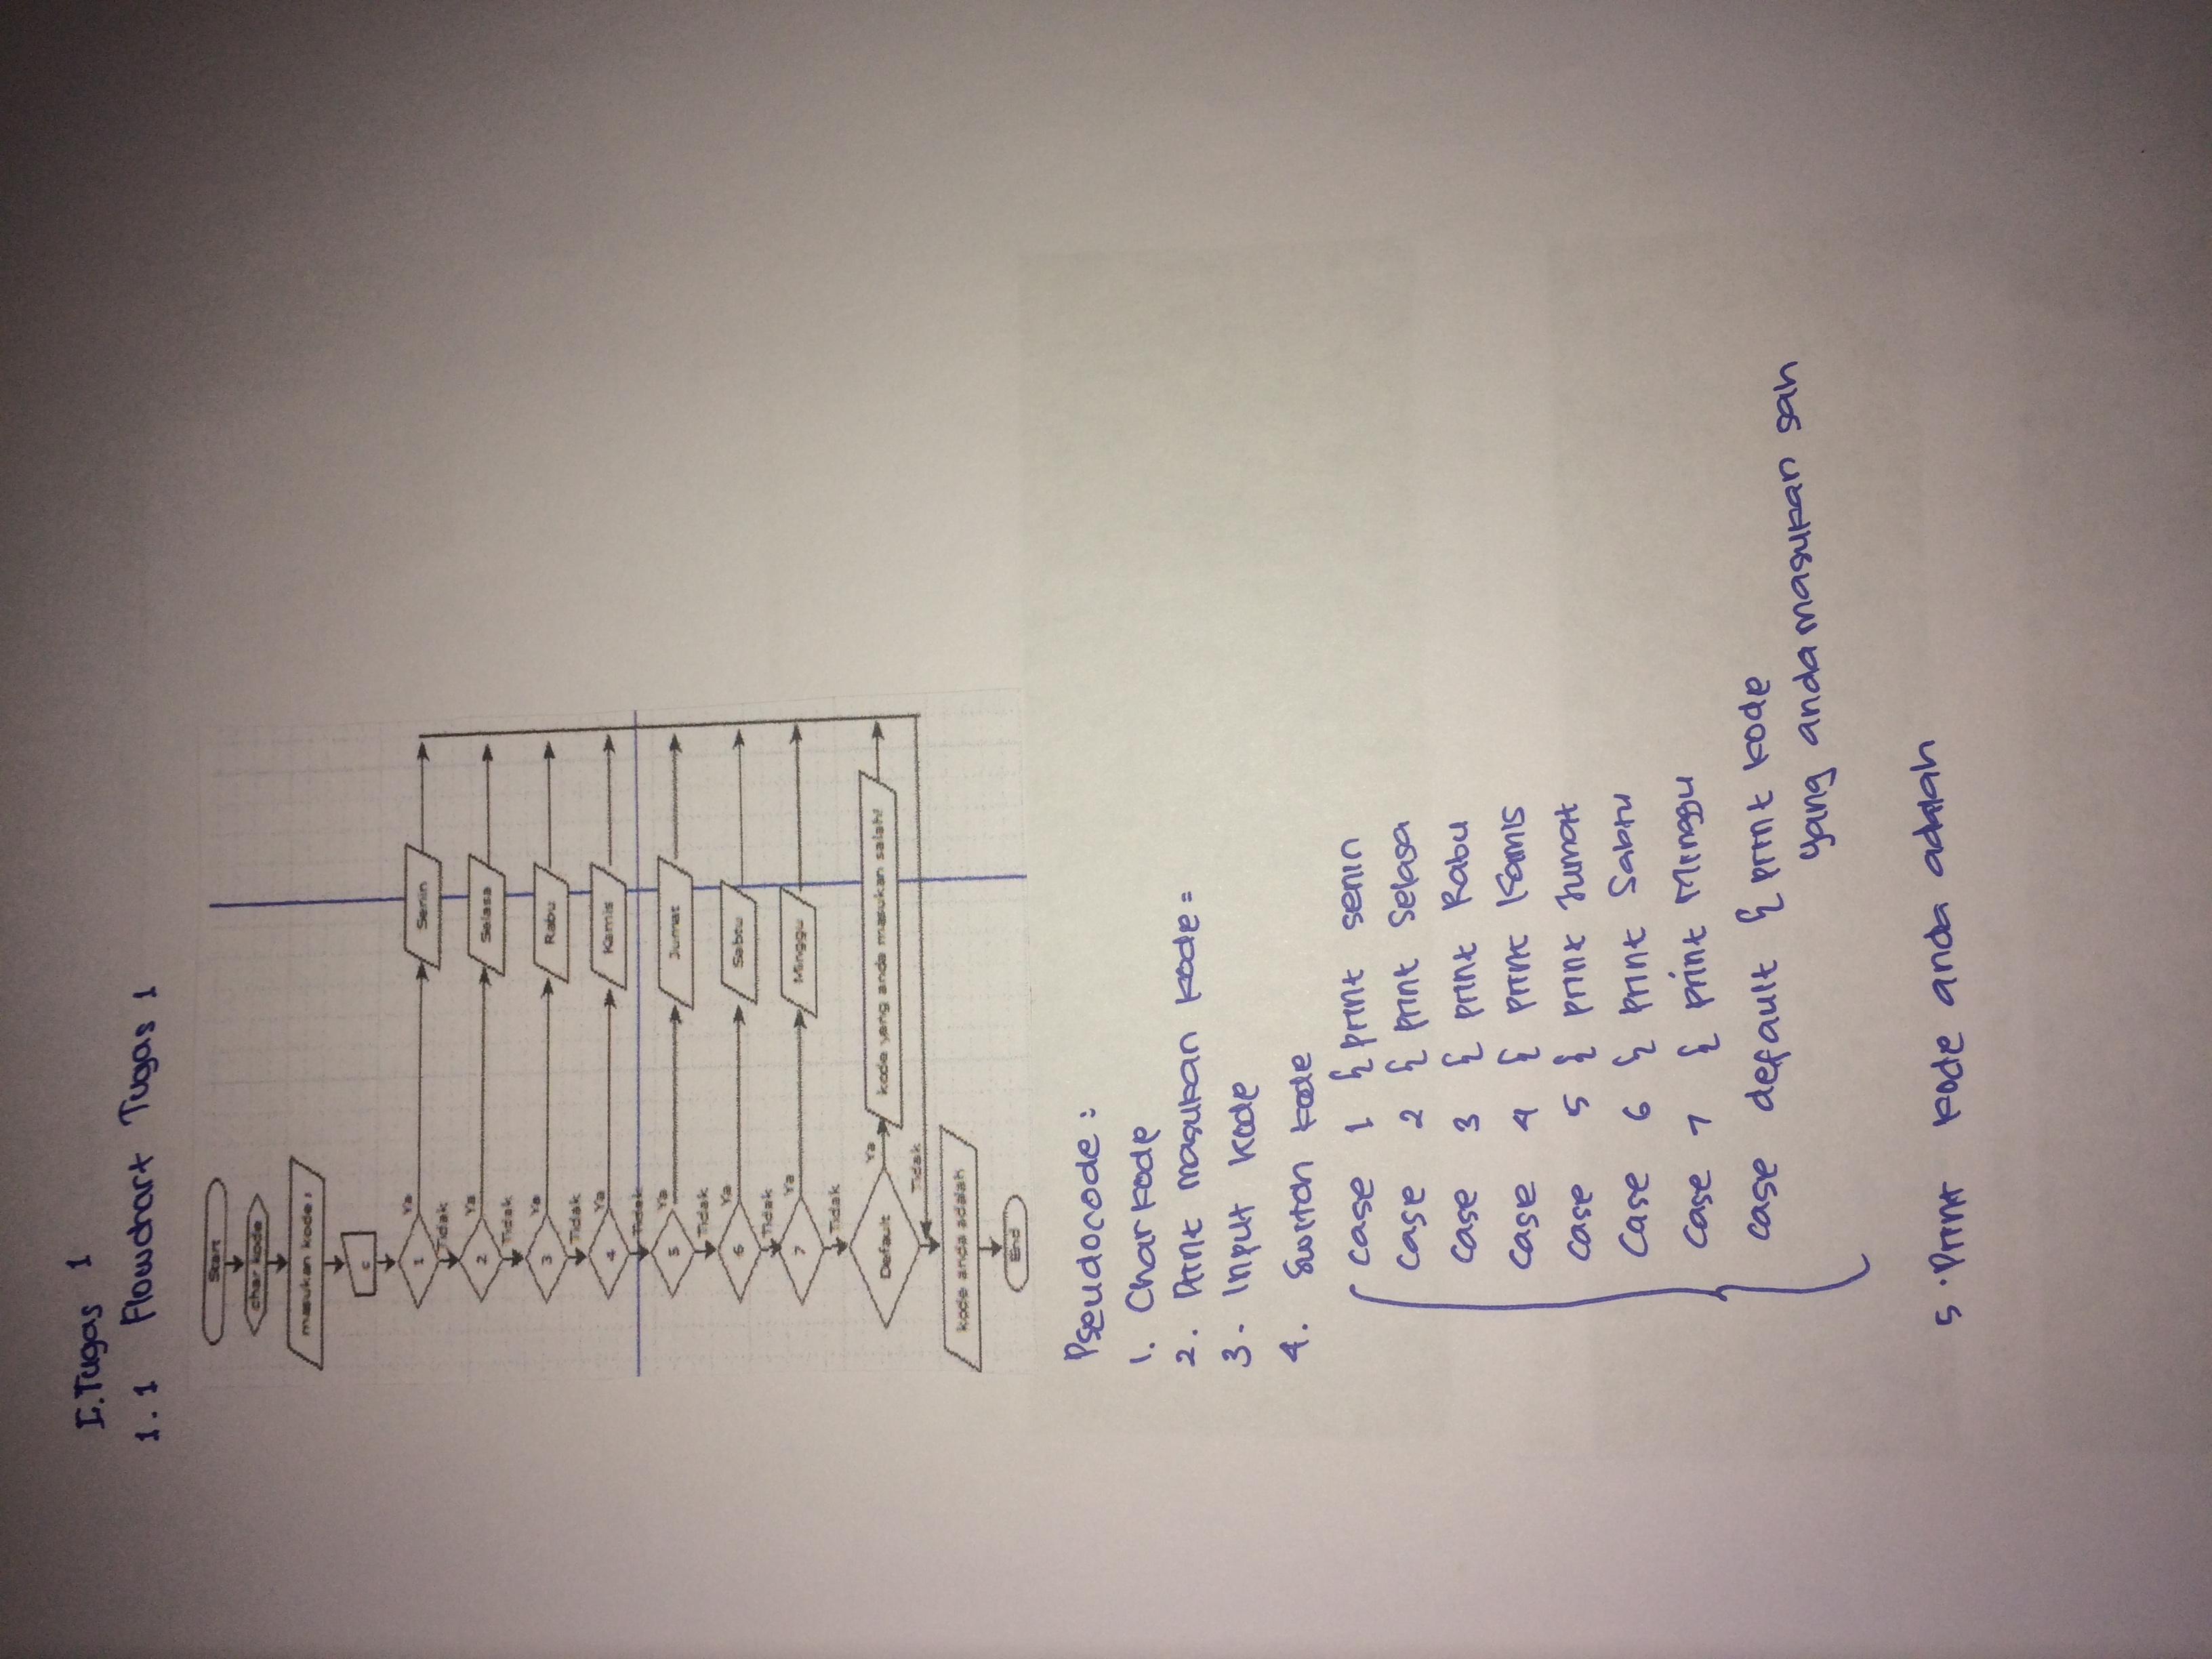 I. Tugas 1
1.1 Flowchart Tugas 1
Start
char kode
masukan kode :
c
1 Ya Senin
Tidak
2 Ya Selasa
Tidak
3 Ya Rabu
Tidak
4 Ya Kamis
Tidak
5 Ya Jumat
Tidak
6 Ya Sabtu
Tidak
7 Ya Minggu
Tidak
Default Ya kode yang anda masukan salah!
Tidak
kode anda adalah
End
Pseudocode :
1. Char kode
2. Print masukan kode =
3. Input kode
4. Switch kode
case 1 { print senin
case 2 { print Selasa
case 3 { print Rabu
case 4 { print Kamis
case 5 { print Jumat
case 6 { print Sabtu
case 7 { print Minggu
case default { print kode
yang anda masukan sah
5. Print kode anda adalah